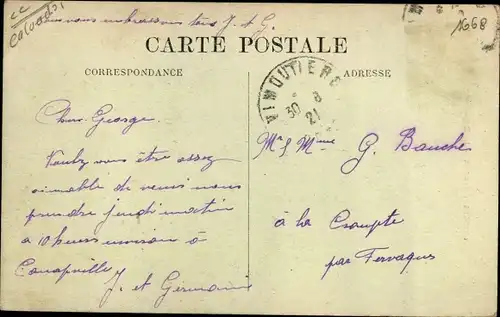 cc
Calvados
1668
vous embrassons tous J. et G.
CARTE POSTALE
CORRESPONDANCE
ADRESSE
VIMOUTIERS
30 8
21
Cher George.
Voulez vous être assez
aimable de venir nous
prendre jeudi matin
a 10 heures environ à
Canapville
J. et Germaine
Mr & Mme G. Bauche
à la Croupte
par Fervaques